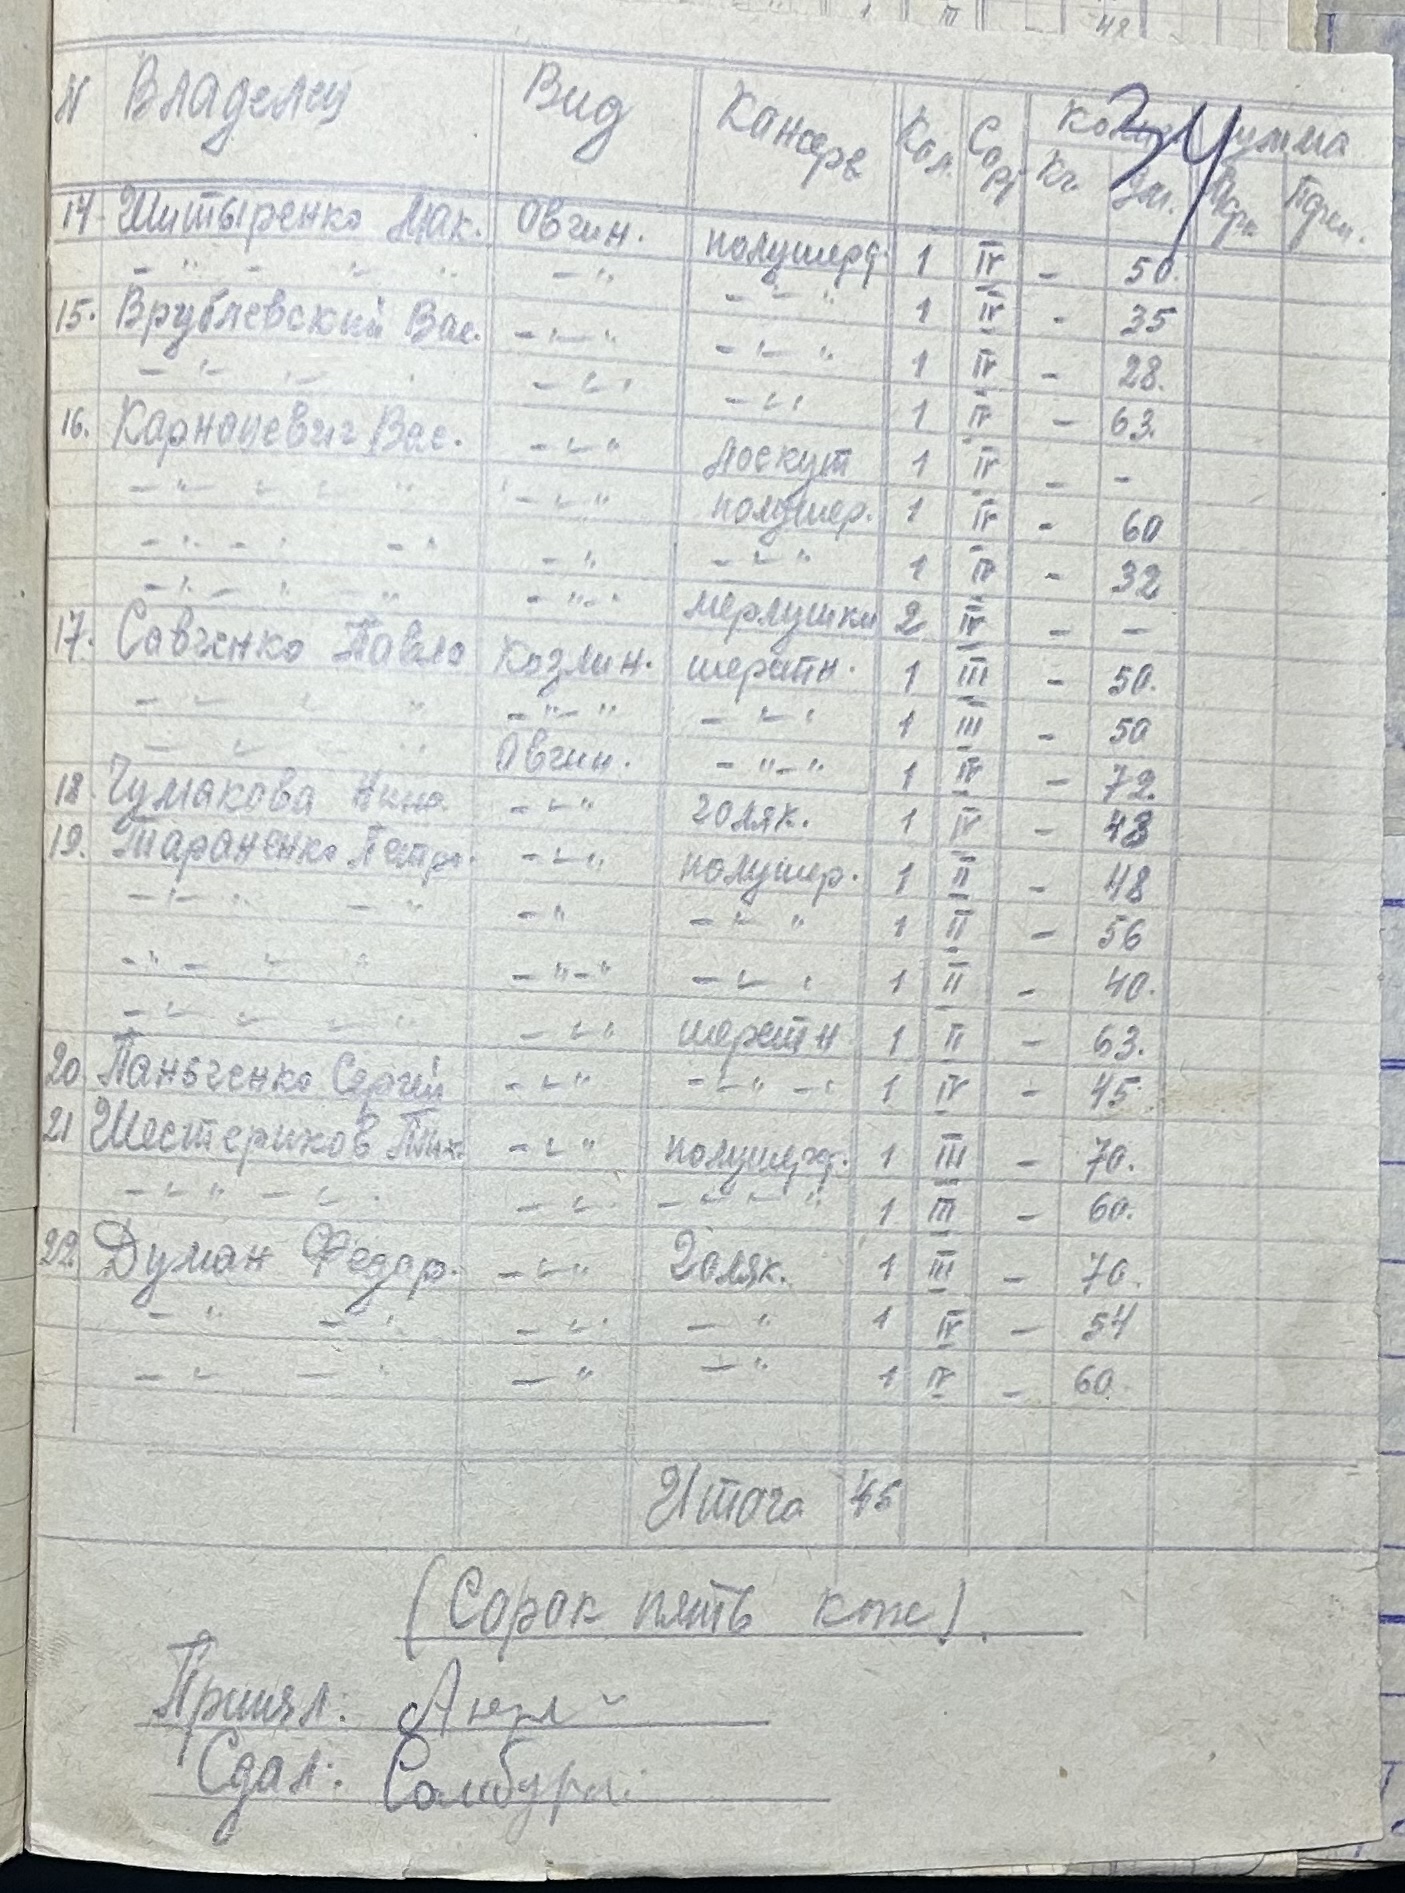 N Владелец Вид Кансерв Кол. Сорт Колич. Сумма
Кг. Дм. Карб. Пфен.
34
14 Шитыренко Мак. Овчин. полушерст. 1 IV - 50.
- " - " " - " - " - " 1 IV - 35
15. Врублевский Вас. - " - " - " - " 1 IV - 28.
- " - " - - " - " - " - " 1 IV - 63.
16. Карнацевич Вас. - " - " лоскут 1 IV - -
- " - " " " " - " - " полушер. 1 IV - 60
- " - " - " - " - " - " 1 IV - 32
- " - " " - " - " мерлушки 2 IV - -
17. Савченко Павло Козлин. шерстн. 1 III - 50.
- " - " " - " - " - " - " 1 III - 50
- " " " Овчин. - " - " 1 IV - 72.
18. Чумакова Нина - " - " голяк. 1 IV - 48
19. Тараненко Петро. - " - " полушер. 1 II - 48
- " - " - " - " - " - " 1 II - 56
- " - " " - " - " - " - " 1 II - 40.
- " - " - " - " - " шерстн 1 II - 63.
20 Панченко Сергій - " - " - " - " - " 1 IV - 45
21 Шестериков Тих. - " - " полушерст. 1 III - 70.
- " - " - " - " - " - " - " - " 1 III - 60.
22 Думан Федор. - " - " Голяк. 1 III - 70.
- " - " - " - " 1 IV - 54
- " - " - " - " 1 IV - 60.
Итого 45
(Сорок пять кож).
Принял:
Сдал: